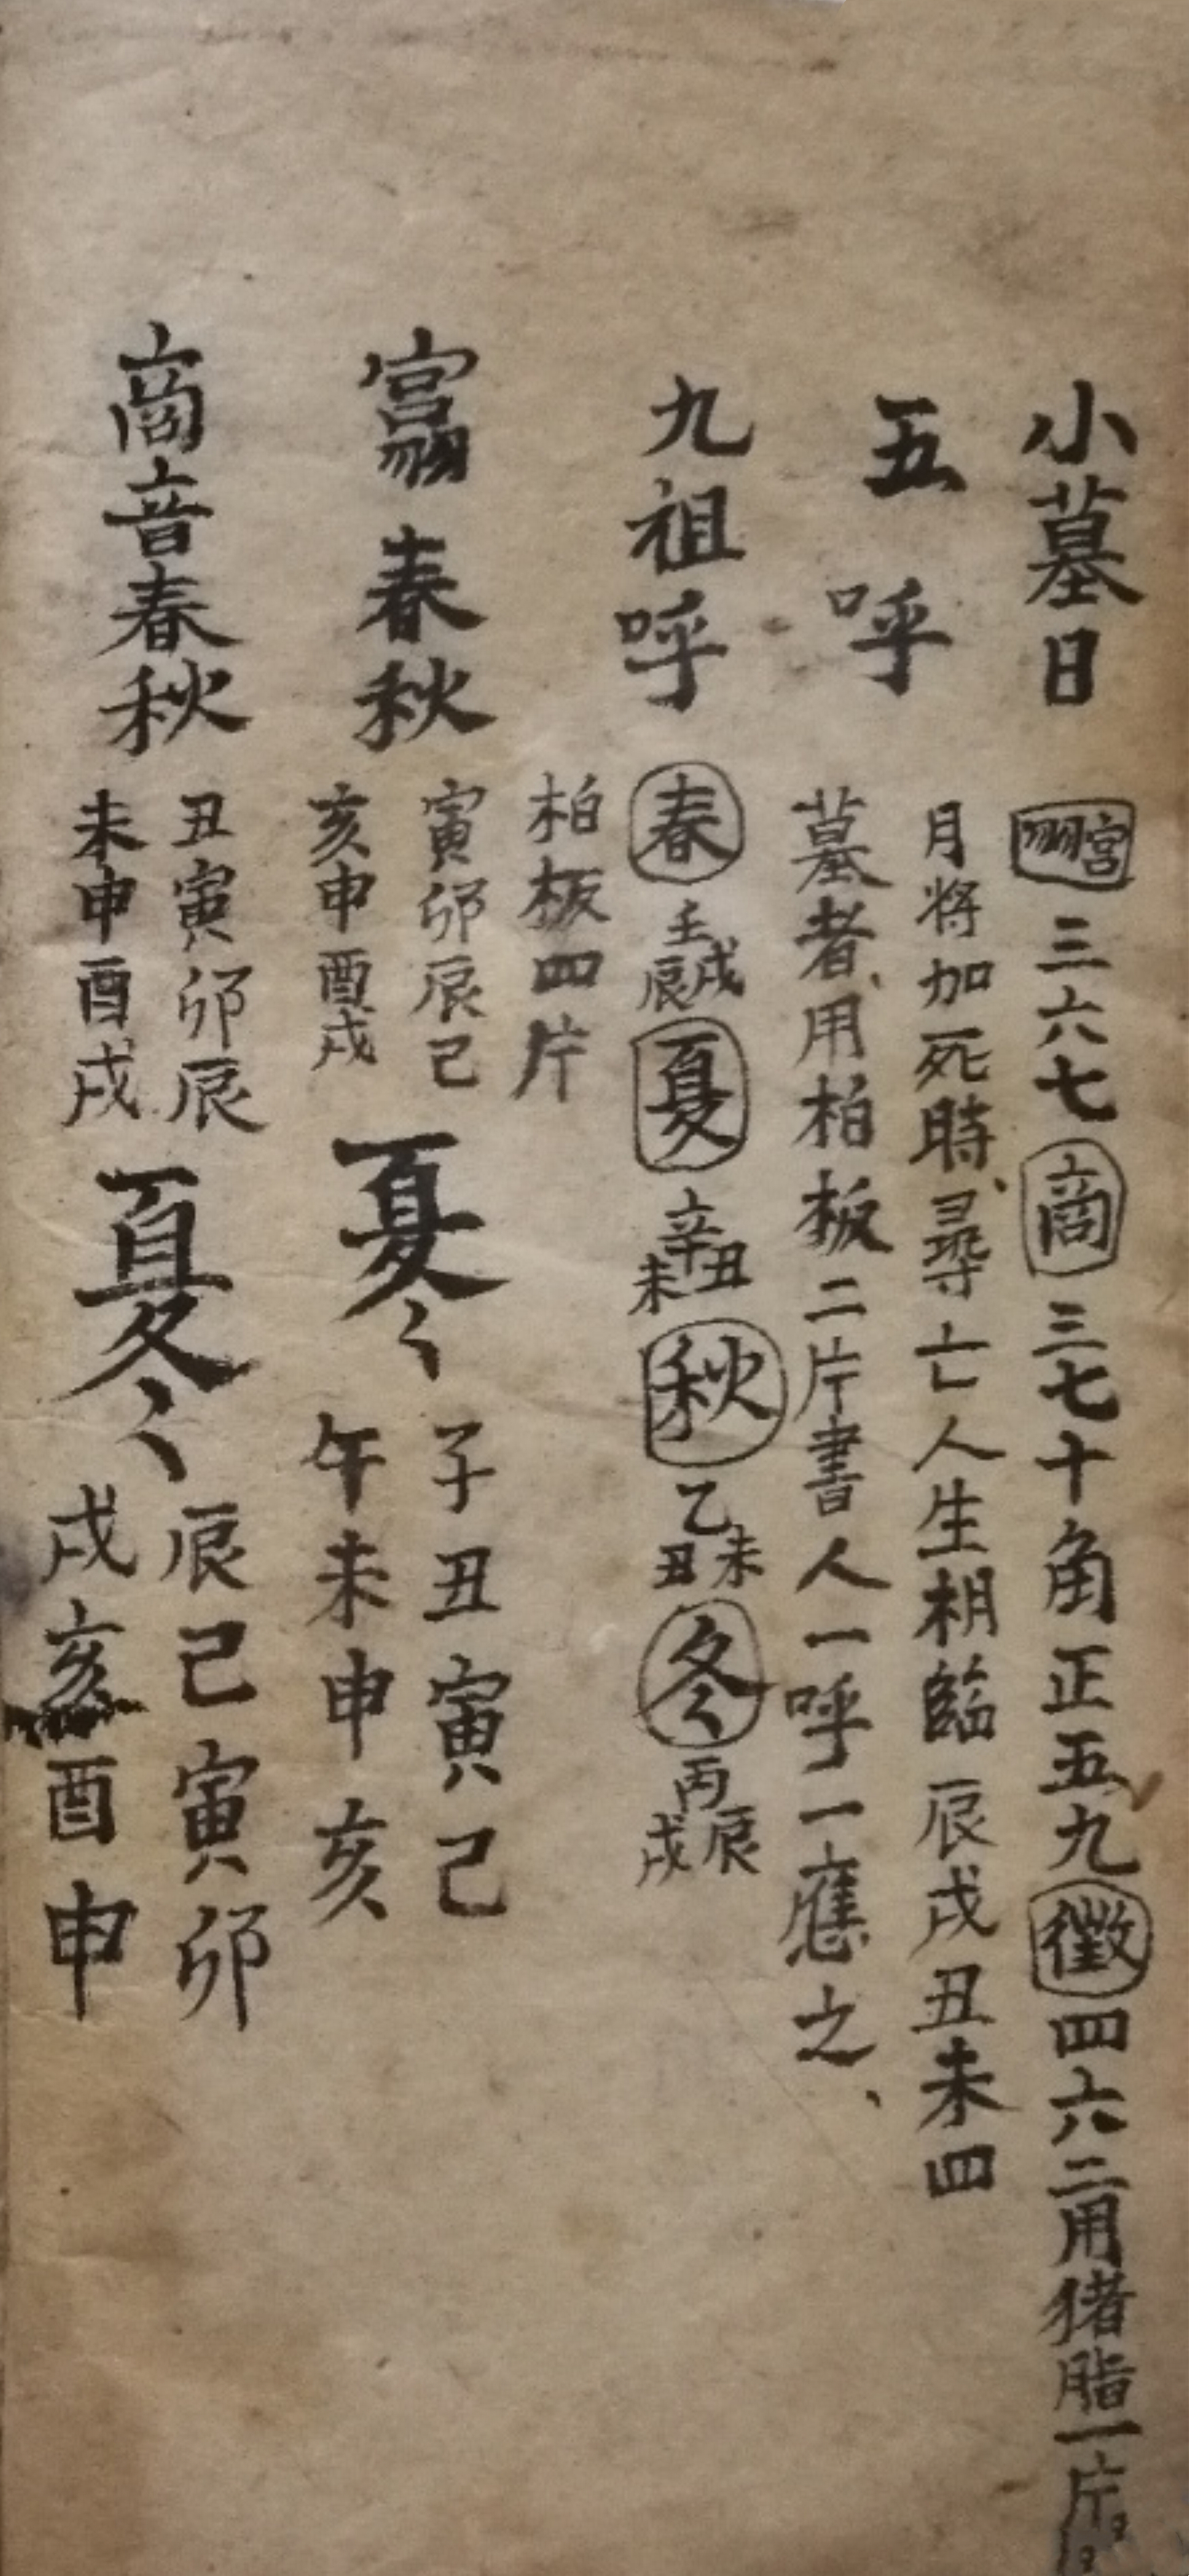 小墓日 宮羽 三六七 商 三七十 角 正五九 徵 四六二 用猪脂一片
五呼 月将加死時、尋亡人生相臨辰戌丑未四
墓者、用柏板二片書人一呼一應之、
九祖呼 春 壬戌辰 夏 辛丑未 秋 乙未丑 冬 丙辰戌
柏板四片
宮羽 春秋 寅卯辰巳
亥申酉戌
夏冬 子丑寅巳
午未申亥
商音春秋 丑寅卯辰
未申酉戌
夏冬 辰巳寅卯
戌亥酉申